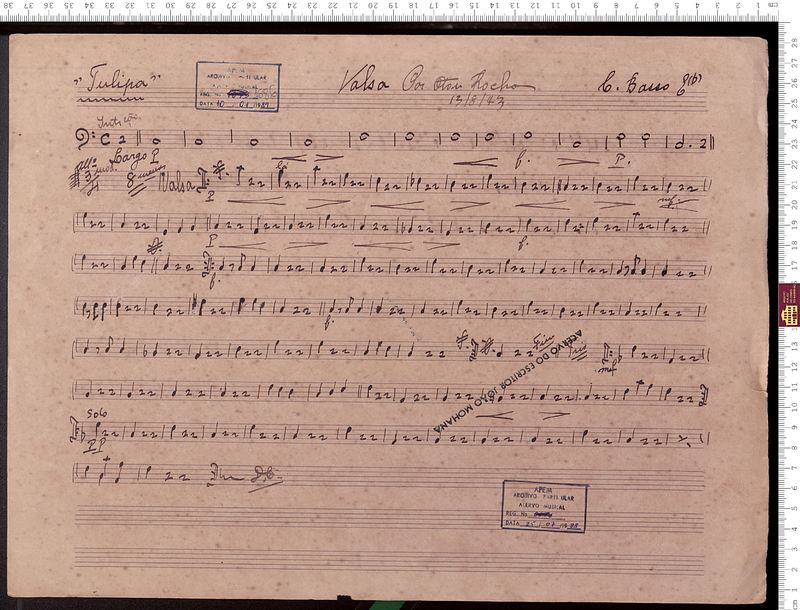 "Tulipa"
Valsa Por Otavio Rocha
13/8/43
C. Basso
APEM
ARQUIVO PARTICULAR
REG. No
DATA 10 , 01 ,1989
Largo P
8
Valsa
P
f.
P.
P
f.
f.
f.
Fim
mf
ACERVO DO ESCRITOR JOÃO MOHANA
Solo
PP
D.C.
APEM
ARQUIVO PARTICULAR
ACERVO MUSICAL
REG. No
DATA 25 , 07 ,1988